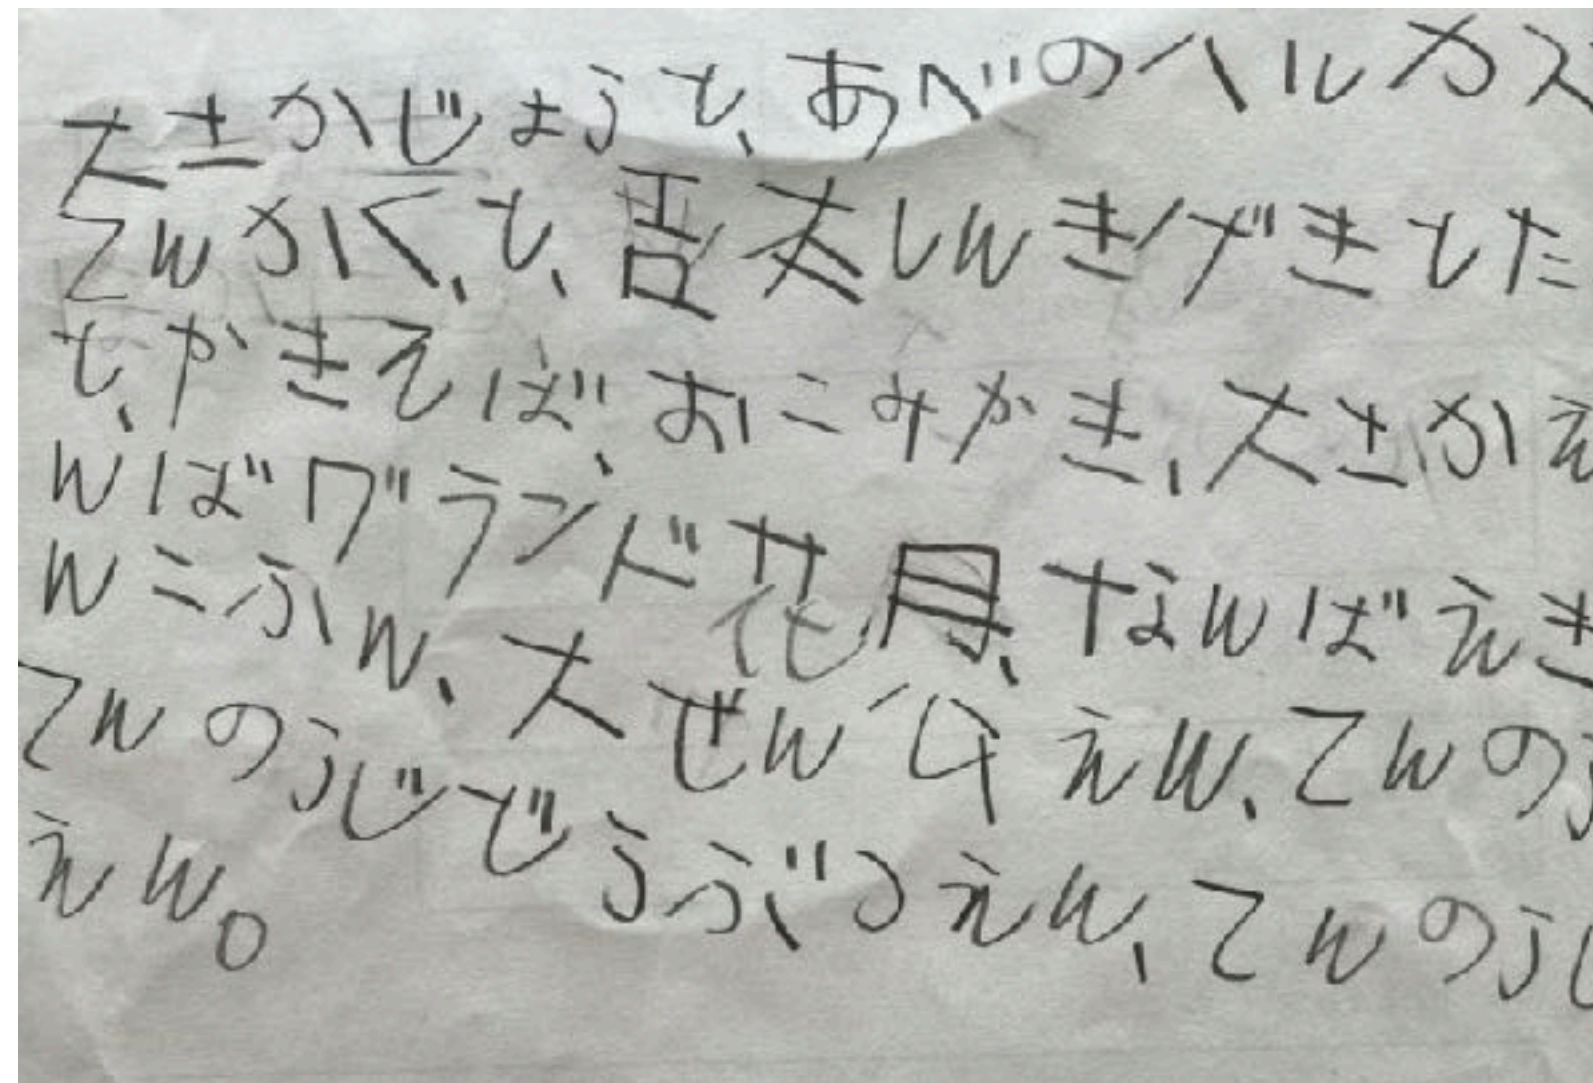 大さかじょうも、あべのハルカス
てんかくも、吾本しんきげきもた
も、やきそば、おこみがき、大さかえ
んばグランド花月、なんばえき
んこふん、大せんくえん、てんのう
てんのうじどうぶつえん、てんのうじ
えん。